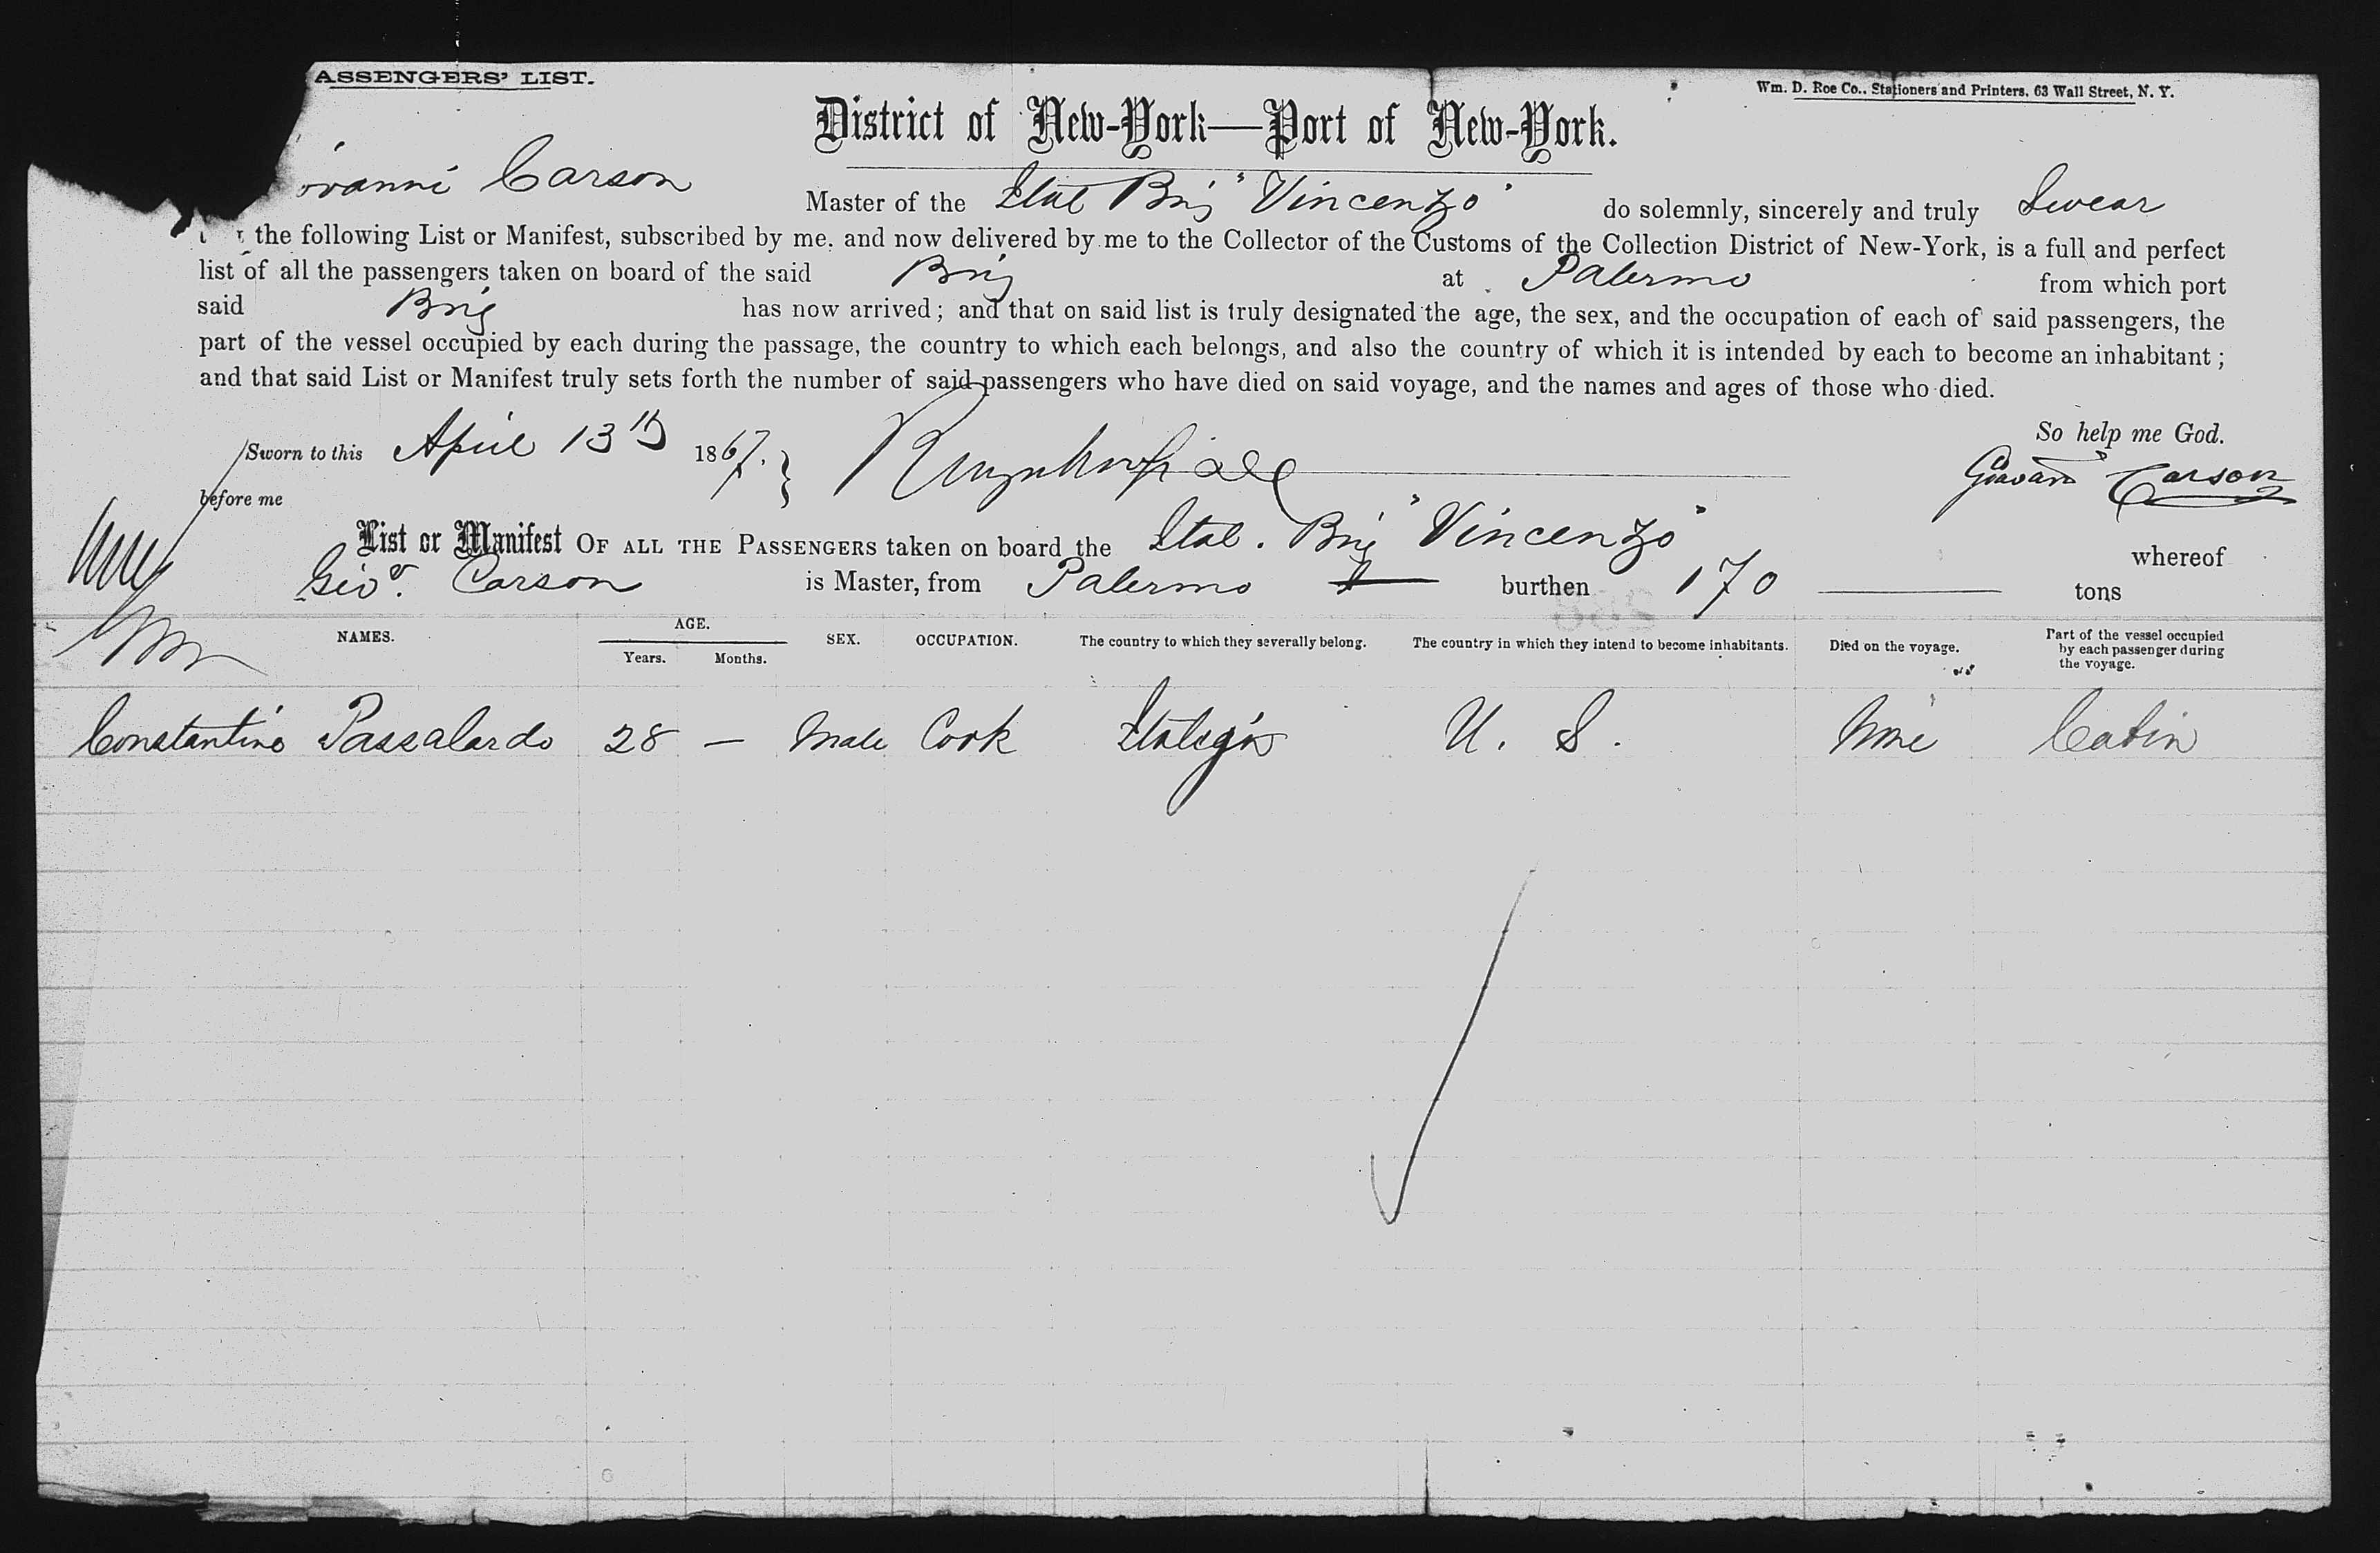 ASSENGERS' LIST.
Wm. D. Roe Co., Stationers and Printers, 63 Wall Street, N. Y.
District of New-York—Port of New-York.
ovanni Carson Master of the Ital Brig "Vincenzo" do solemnly, sincerely and truly Swear
the following List or Manifest, subscribed by me, and now delivered by me to the Collector of the Customs of the Collection District of New-York, is a full and perfect
list of all the passengers taken on board of the said Brig at Palermo from which port
said Brig has now arrived; and that on said list is truly designated the age, the sex, and the occupation of each of said passengers, the
part of the vessel occupied by each during the passage, the country to which each belongs, and also the country of which it is intended by each to become an inhabitant;
and that said List or Manifest truly sets forth the number of said passengers who have died on said voyage, and the names and ages of those who died.
So help me God.
Sworn to this April 13th 1867. }
before me
Carson
List or Manifest OF ALL THE PASSENGERS taken on board the Ital. Brig "Vincenzo" whereof
Giov. Carson is Master, from Palermo burthen 170 tons
NAMES. AGE. Years. Months. SEX. OCCUPATION. The country to which they severally belong. The country in which they intend to become inhabitants. Died on the voyage. Part of the vessel occupied by each passenger during the voyage.
Constantino Passalardo 28 — Male Cook U. S. None Cabin